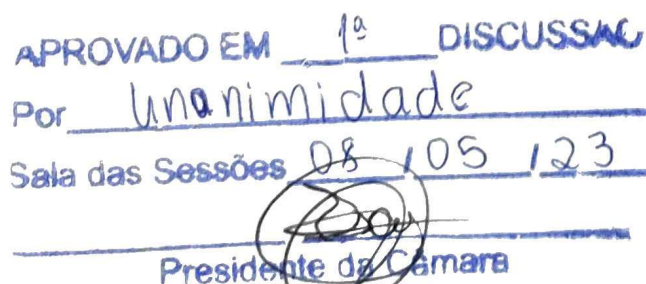 APROVADO EM 1ª DISCUSSÃO
Por unanimidade
Sala das Sessões 08 / 05 / 23
Presidente da Câmara